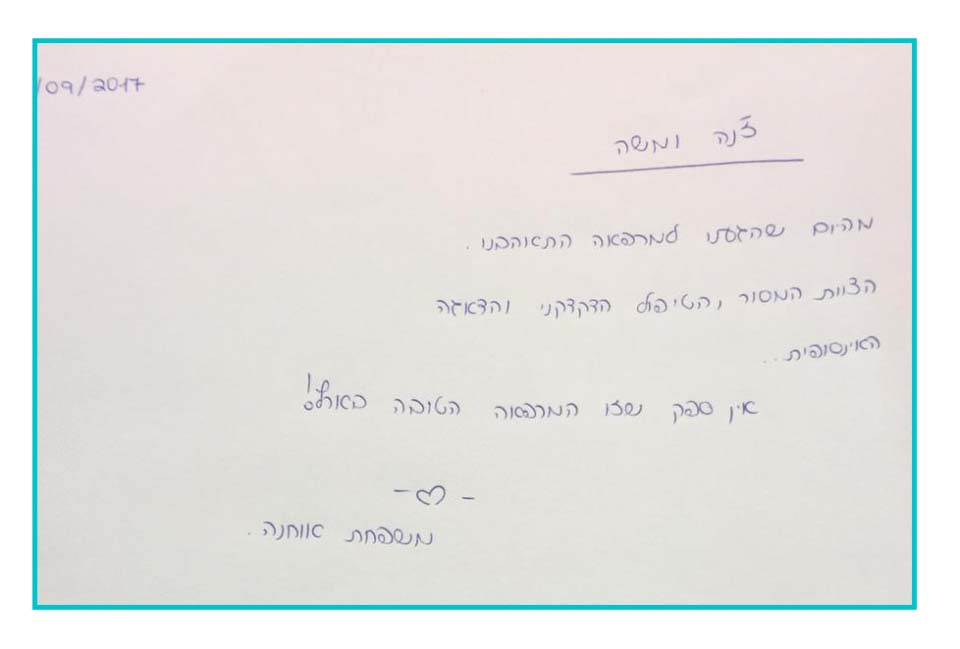 /09/2017
ז'נה ומשה
מהיום שהגעתי למרפאה התאהבנו.
הצוות המסור, הטיפול הדקדקני והדאגה
האינסופית...
אין ספק שזו המרפאה הטובה בארץ!
-♡-
משפחת אוחנה.